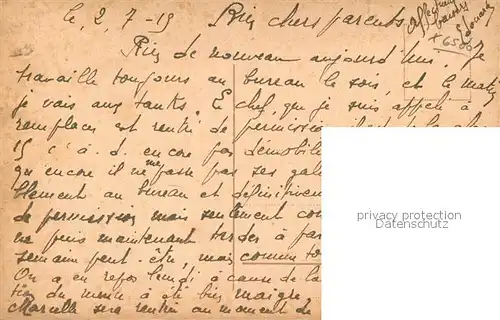 le, 2, 7-19 Bien chers parents
affectueux
baisers
Edouard
x 6500
Rien de nouveau aujourd'hui. Je
travaille toujours au bureau le soir, et le matin
je vais aux tanks. Le chef, que je suis appelé à
remplacer est rentré de permission
15 c'. à. d. encore pas démobilis
qu'encore il ne me passe pas ses gal
blement au bureau et définitivem
de permission mais seulement con
ne puis maintenant tarder à par
semaine peut-être, mais comme to
On a eu repos lundi à cause de la
du menu a été bien maigre.
Marcelle sera rentrée au moment de
privacy protection
Datenschutz